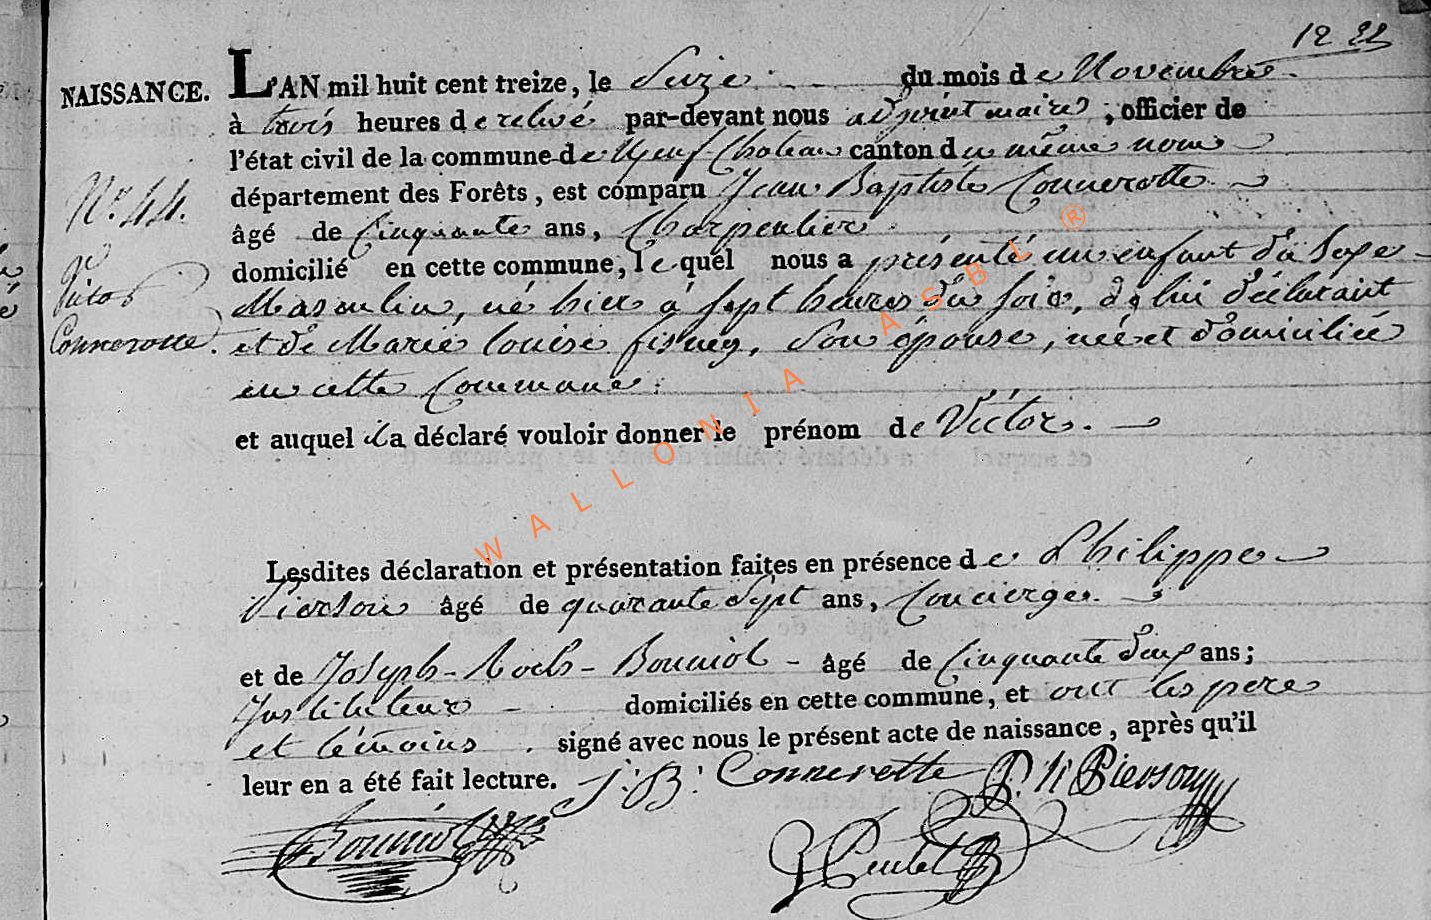 NAISSANCE. L'AN mil huit cent treize, le Seize du mois de Novembre
à trois heures de relevé par-devant nous adjoint maire, officier de
l'état civil de la commune de Neufchateau canton du même nom
département des Forêts, est comparu Jean Baptiste Connerotte
Nº 44.
âgé de Cinquante ans, Charpentier
domicilié en cette commune, lequel nous a présenté un enfant du Sexe
Masculin, né hier à sept heures du soir, de lui déclarant
Connerotte. et de Marie louise fisney, Son épouse, née et domiciliée
en cette Commune.
et auquel il a déclaré vouloir donner le prénom de Victor.
WALLONIA ASBL ®
Lesdites déclaration et présentation faites en présence de Philippe
Pierson âgé de quarante Sept ans, Concierge
et de Joseph-Roch-Bouniol - âgé de Cinquante deux ans;
domiciliés en cette commune, et ont les pere
et témoins signé avec nous le présent acte de naissance, après qu'il
leur en a été fait lecture. J: B: Connerotte P. H Pierson
Bouniol